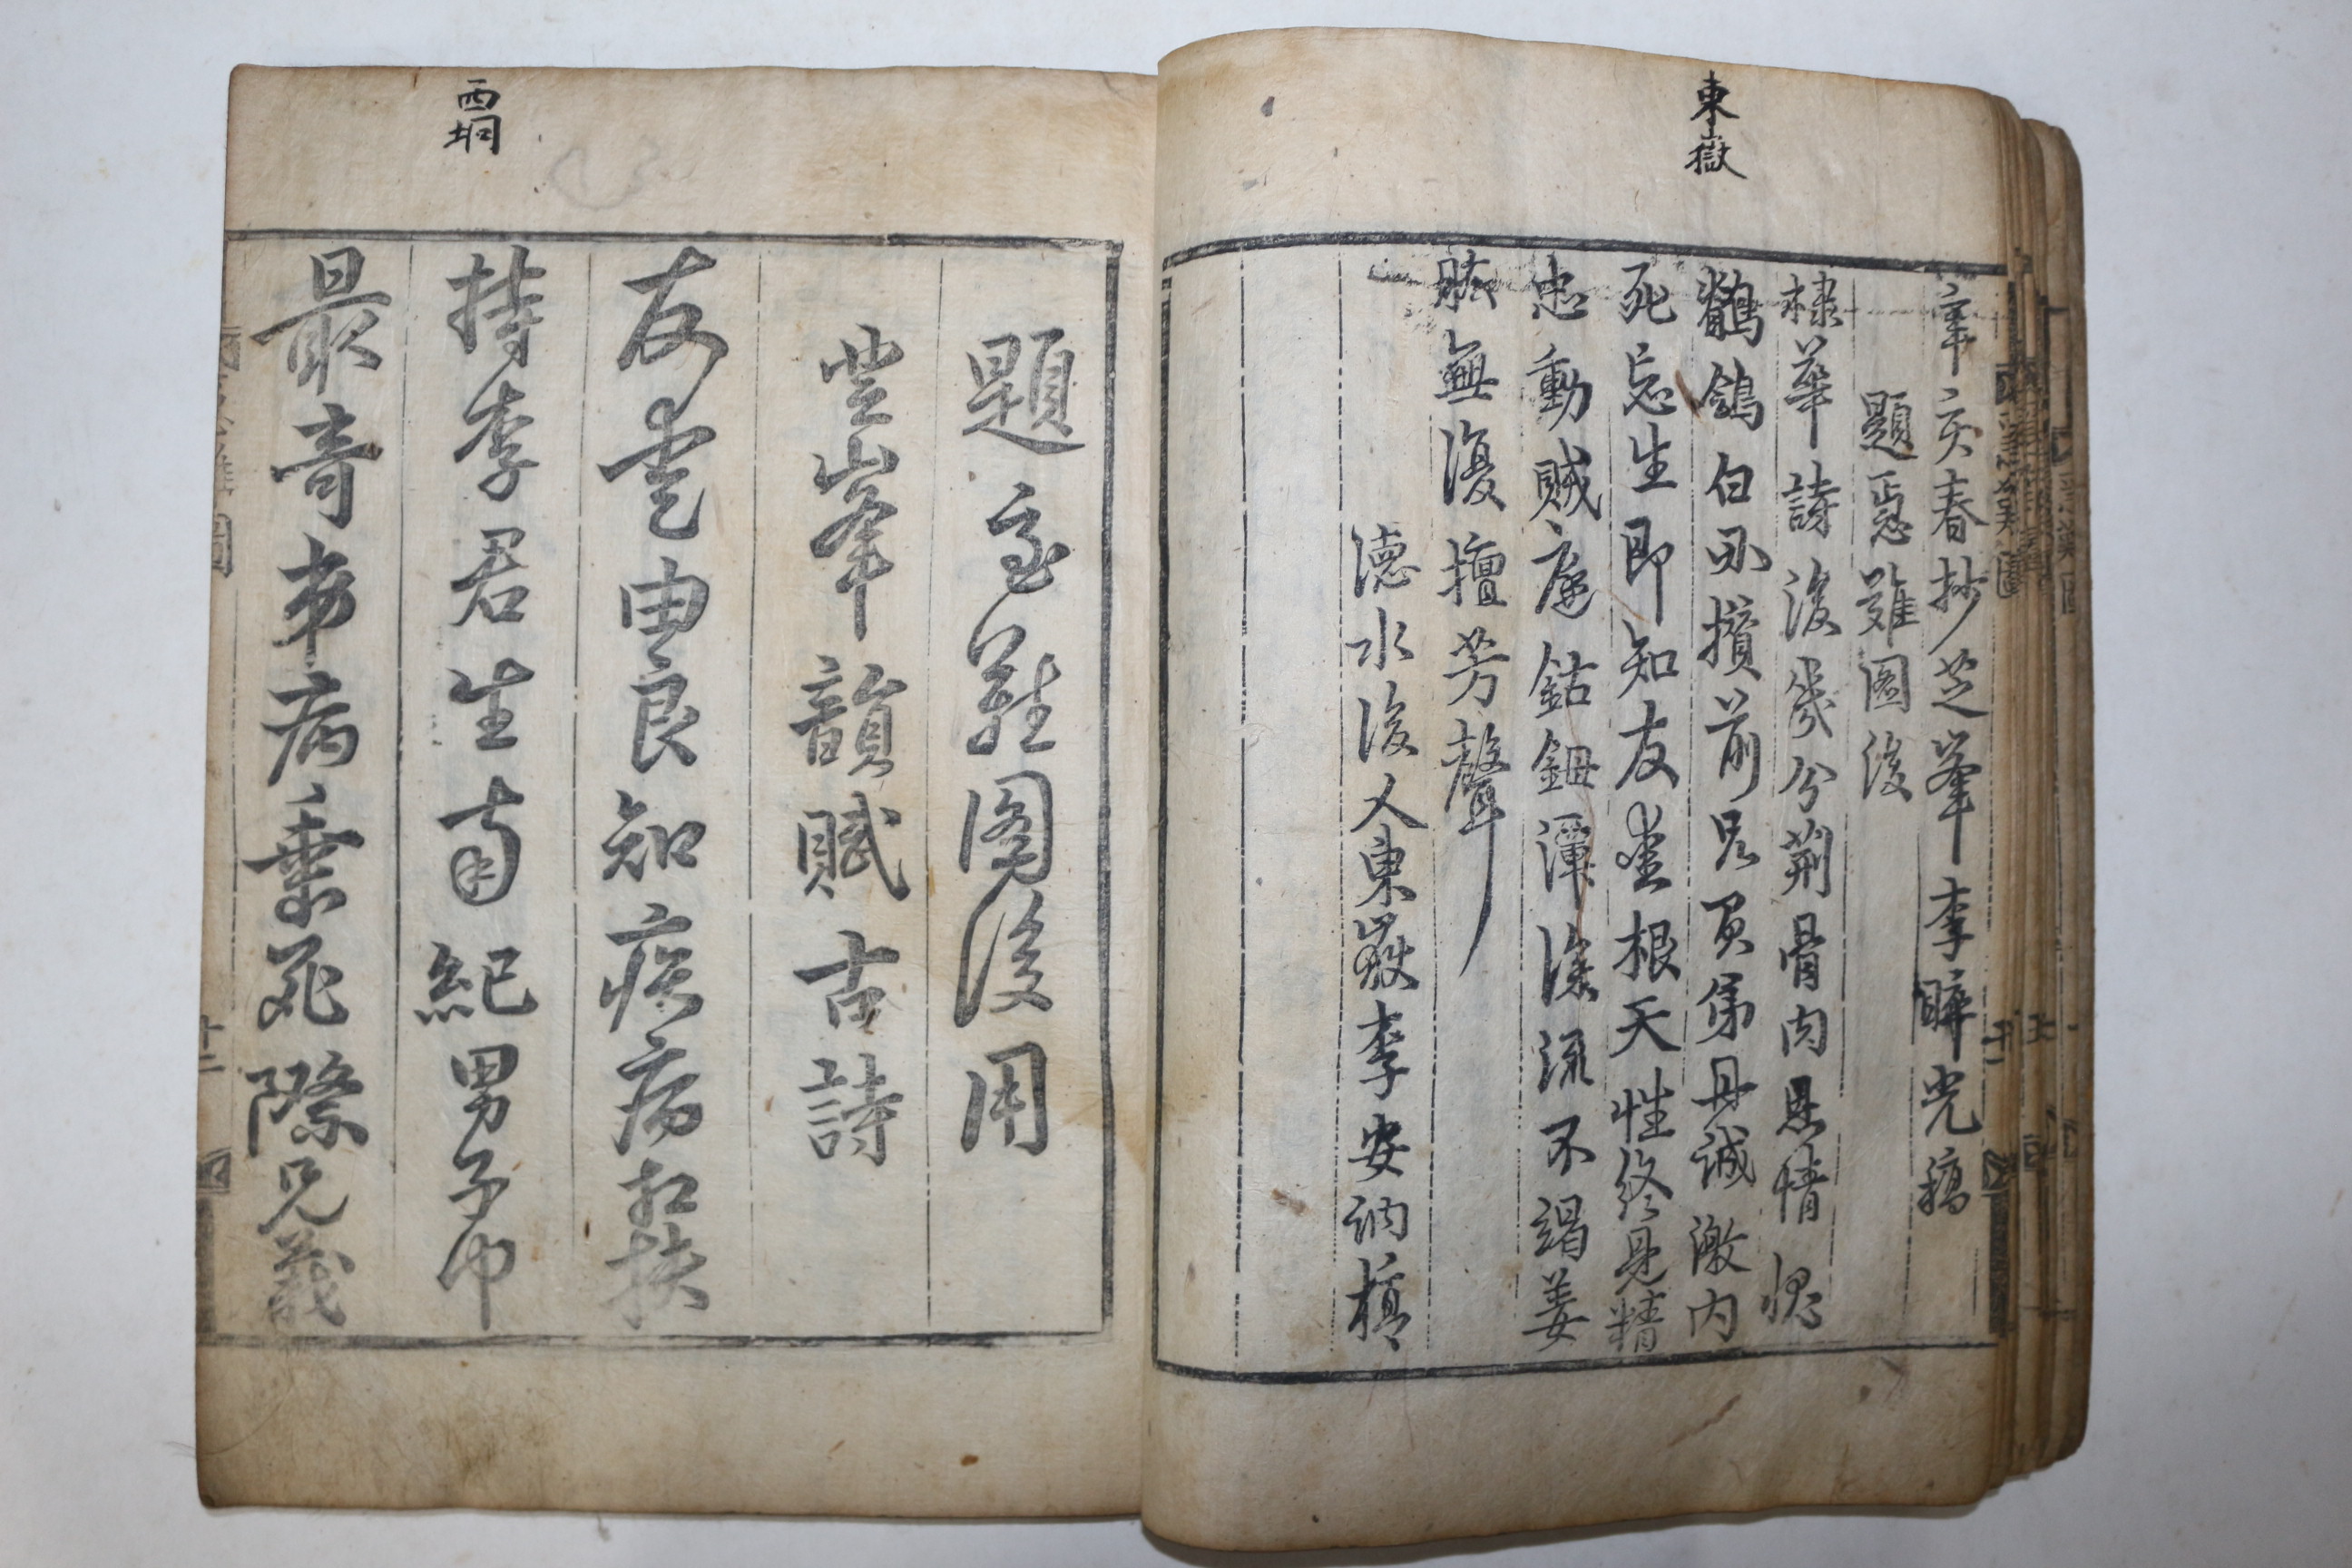 東嶽
辛亥春抄芝峯李睟光稿
題惡難圖後
棣華詩後幾分荊骨肉恩情愧
鶺鴒白刃攢前兄負弟丹誠激內
死忘生即知友愛根天性終見精
忠動賊庭鈷鉧潭深流不竭姜
肱無復擅芳聲
德水後人東嶽李安訥稿
西坰
題急難圖後用
芝峯韻賦古詩
友愛由良知疾病相扶
持李君生南紀男子中
最奇弟病垂死際兄義
十二